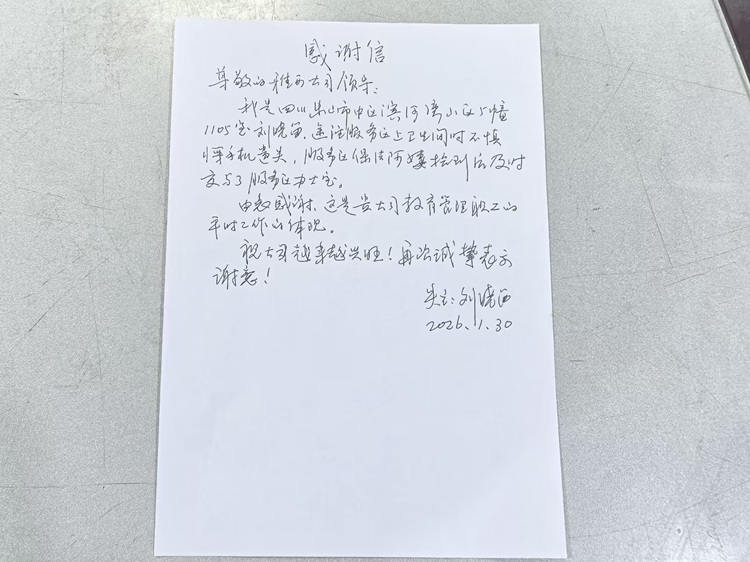 感谢信
尊敬的雅西公司领导:
我是四川乐山市中区滨河湾小区5幢
1105室刘晓西,途注服务区上卫生间时不慎
将手机遗失,服务区保洁阿姨捡到后及时
交与了服务区办公室。
由衷感谢,这是贵公司教育管理职工的
平时工作的体现。
祝公司越来越兴旺!再次诚挚表示
谢意!
失主:刘晓西
2026.1.30